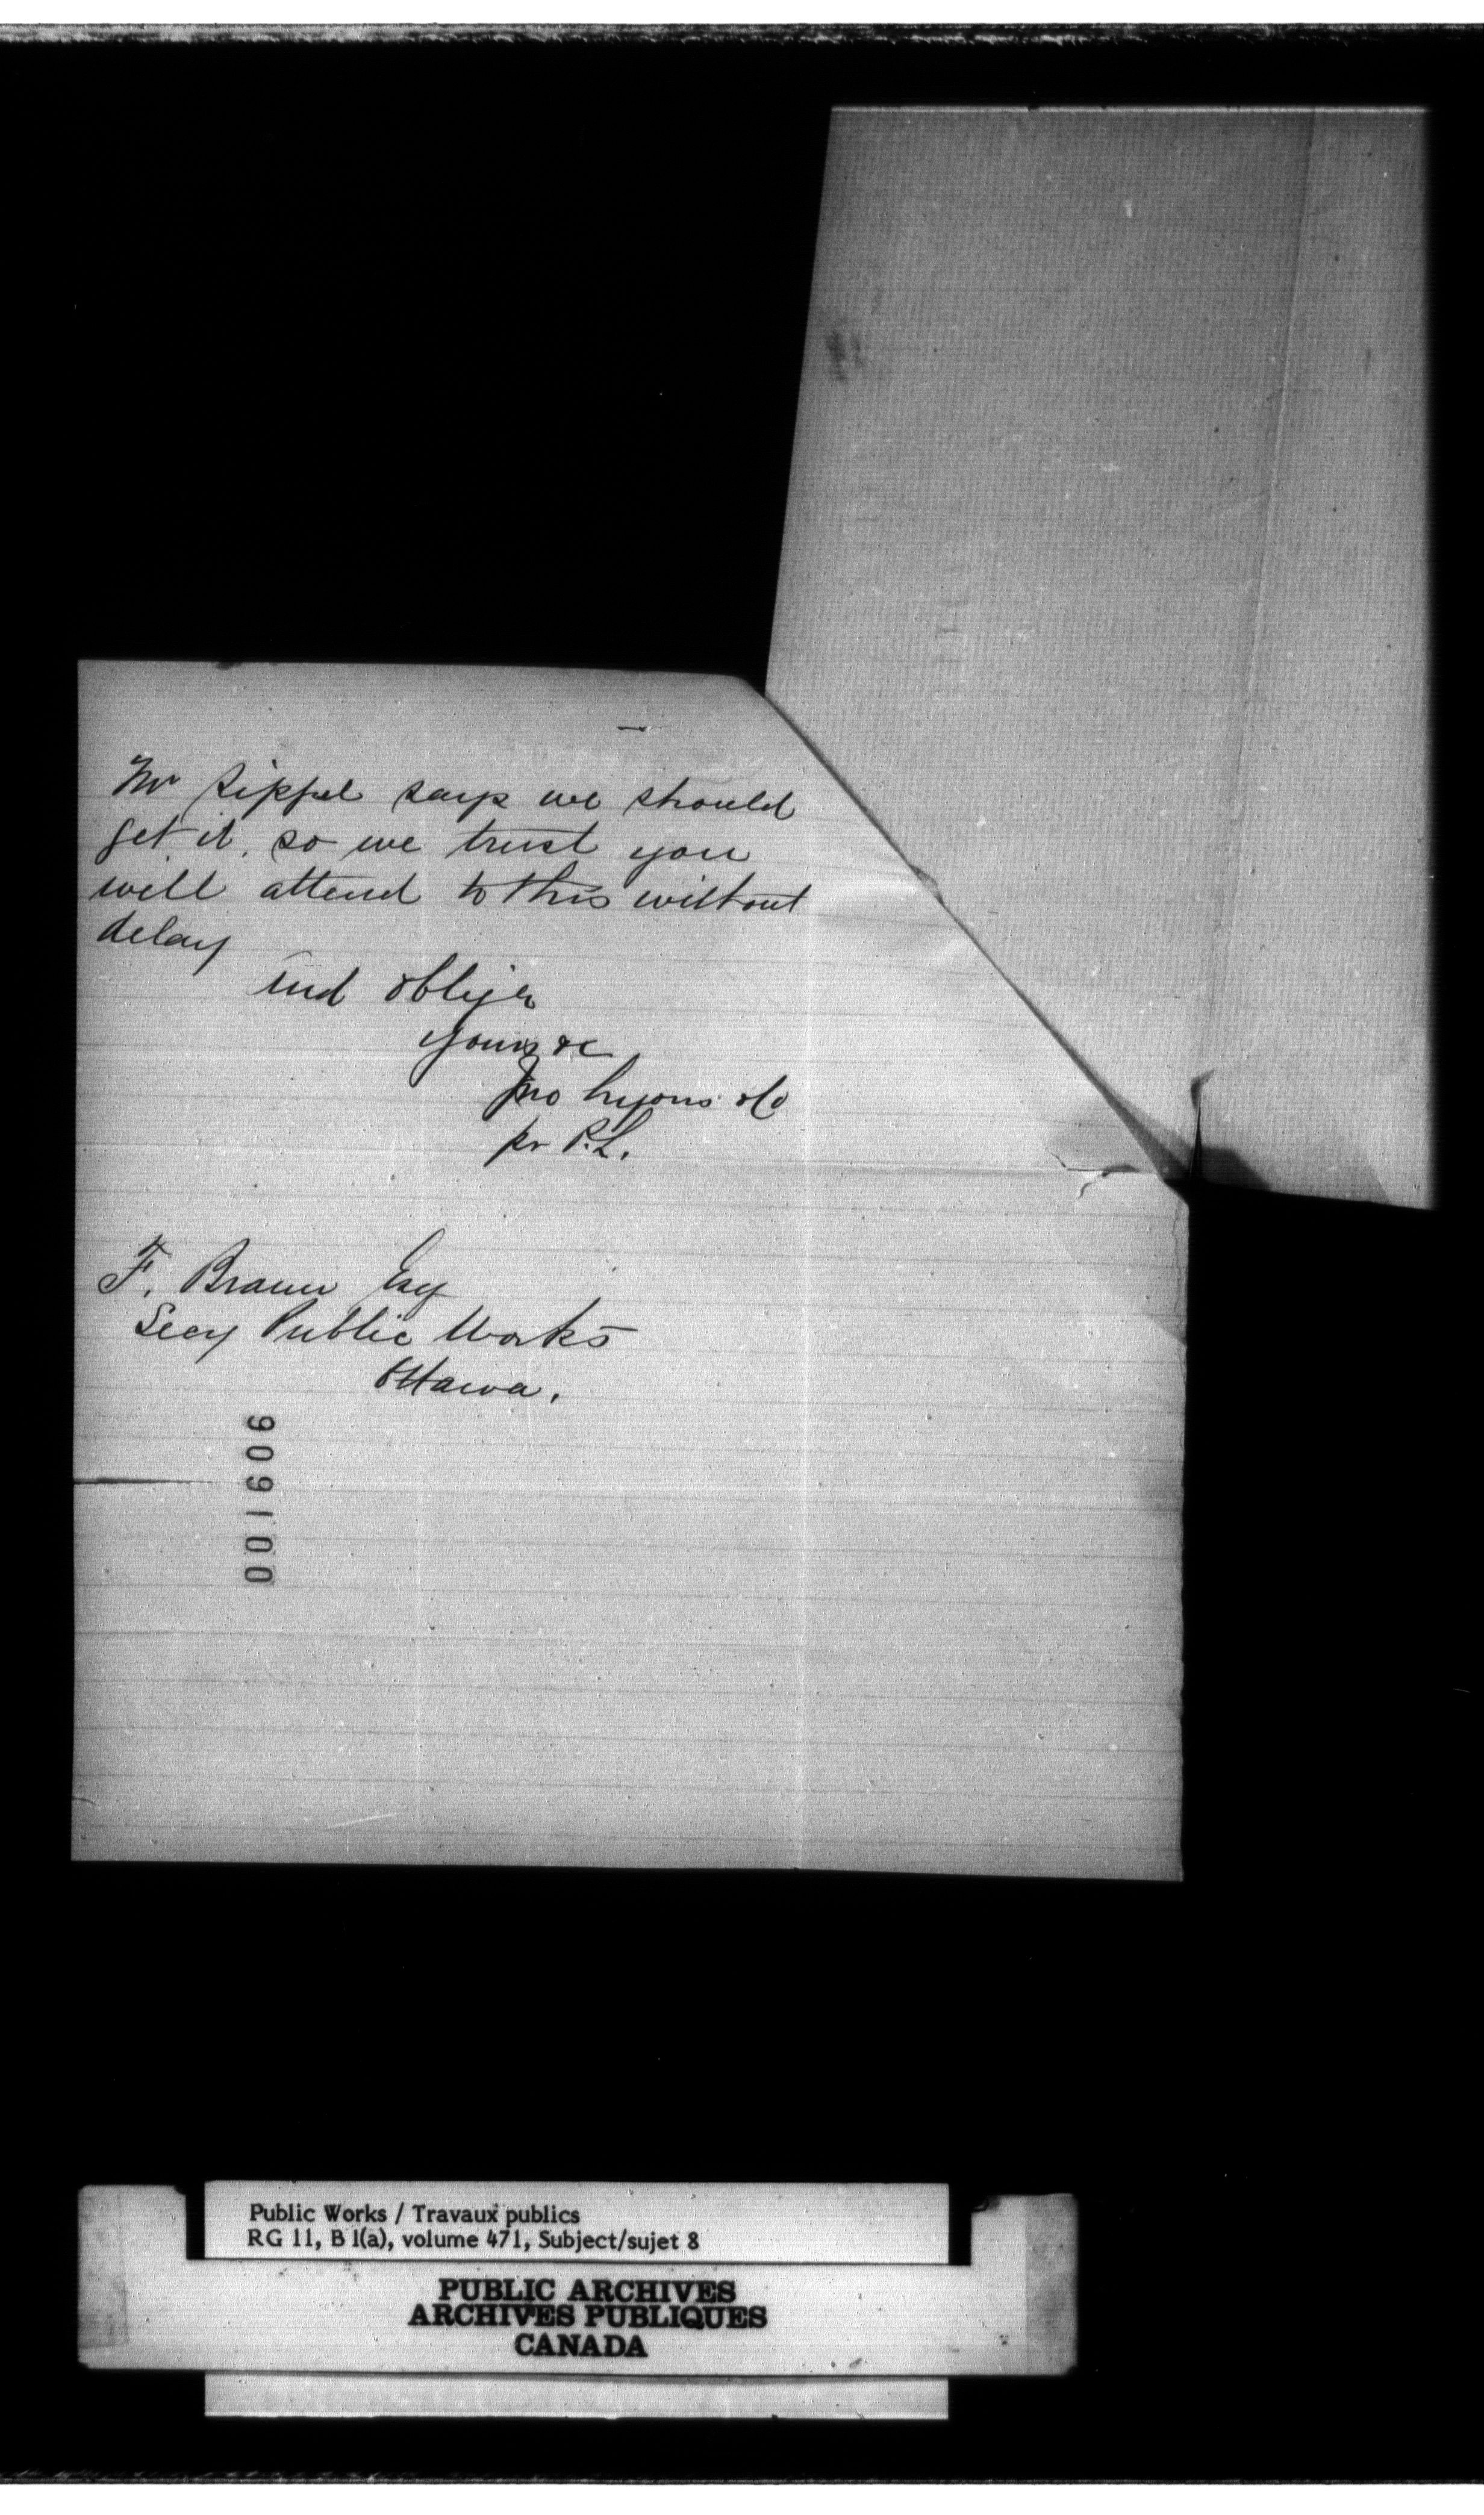 Mr Sippel says we should
get it, so we trust you
will attend to this without
delay
and oblige
yours &c
Jno Lyons &Co
pr P.L.
F. Braun Esq
Secy Public Works
Ottawa.
001606
Public Works / Travaux publics
RG 11, B 1(a), volume 471, Subject/sujet 8
PUBLIC ARCHIVES
ARCHIVES PUBLIQUES
CANADA